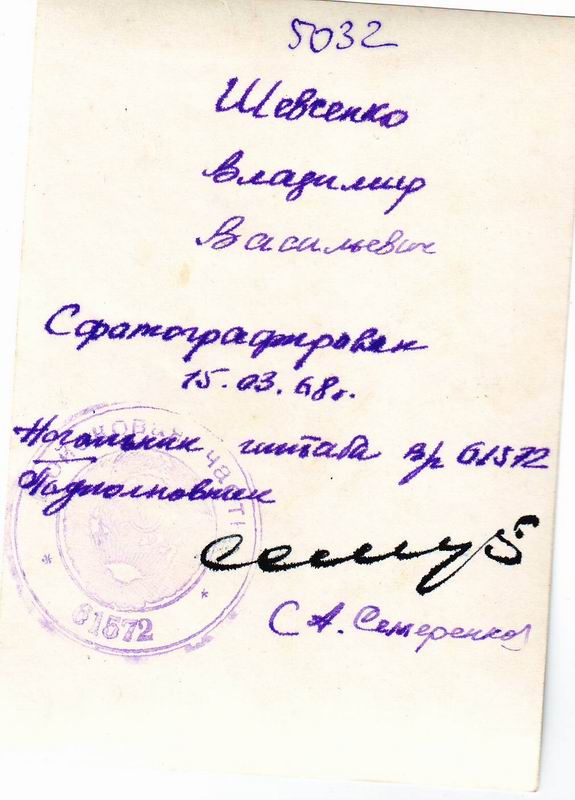 5032
Шевченко
Владимир
Васильевич
Сфотографирован
15.03.68г.
Начальник штаба в/ч 61572
Подполковник
С А. Семеренко
войсковая часть
* 61572 *